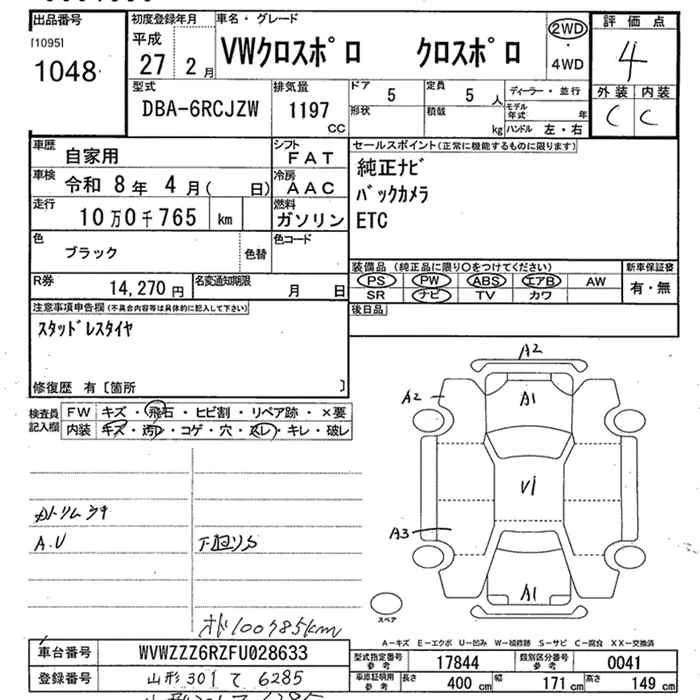 出品番号
[1095]
1048
初度登録年月
平成
27 2月
車名・グレード
VWクロスポロ クロスポロ
2WD
・
4WD
評価点
4
外装 内装
C C
型式
DBA-6RCJZW
排気量
1197
CC
ドア
5
定員
5
人
形状
積載
kg
ディーラー・並行
モデル年式 年
ハンドル 左・右
車歴
自家用
シフト
FAT
車検
令和 8年 4月( 日)
冷房
AAC
走行
10万0千765 km
燃料
ガソリン
色
ブラック
色替
色コード
R券
14,270円
名変通知期限
月 日
セールスポイント(正常に機能するものに限ります)
純正ナビ
バックカメラ
ETC
装備品(純正品に限り○をつけてください)
PS PW ABS エアB AW
SR ナビ TV カワ
新車保証書
有・無
後日品
注意事項申告欄(不具合内容等は具体的に記入して下さい)
スタッドレスタイヤ
修復歴 有〔箇所 〕
検査員記入欄
FW キズ・飛石・ヒビ割・リペア跡・×要
内装 キズ・汚レ・コゲ・穴・スレ・キレ・破レ
A.U
下廻りS
オド100785km
A2
A1
A2
V1
A3
A1
スペア
A−キズ E−エクボ U−凹み W−補修跡 S−サビ C−腐食 XX−交換済
車台番号
WVWZZZ6RZFU028633
登録番号
山形301 て 6285
型式指定番号
参考
17844
類別区分番号
参考
0041
車庫証明用
参考
長さ 400cm
幅 171cm
高さ 149cm